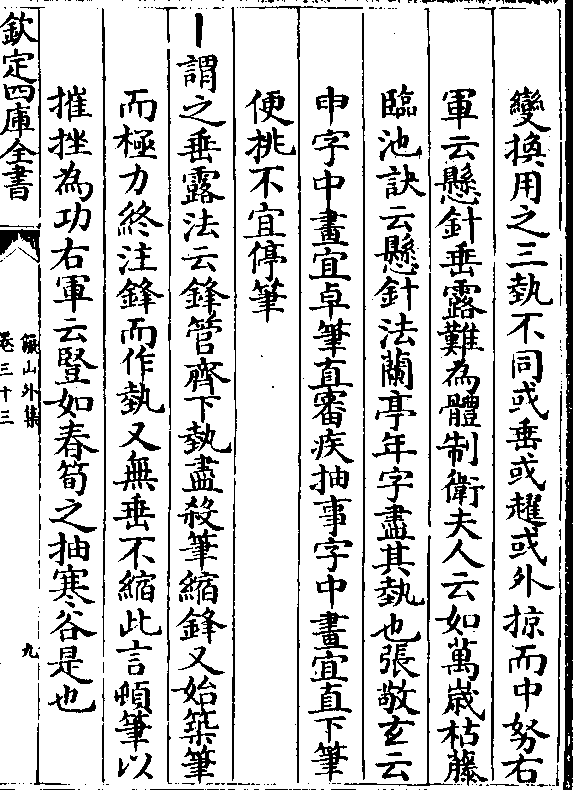 變換用之三埶不同或垂或趯或外掠而中努右
軍云懸針垂露難為體制衛夫人云如萬歲枯藤
臨池訣云懸針法蘭亭年字盡其埶也張敬玄云
申字中畫宜卓筆直審疾抽事字中畫宜直下筆
便挑不宜停筆
丨謂之垂露法云鋒管齊下埶盡殺筆縮鋒又始築筆
而極力終注鋒而作埶又無垂不縮此言頓筆以
摧挫為功右軍云豎如春筍之抽寒谷是也
欽定四庫全書
山外集
卷三十三
九